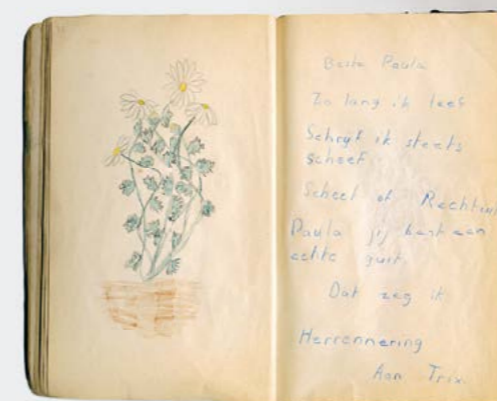 Beste Paula
Zo lang ik leef
Schrijf ik steets
scheef.
Scheef of Rechtuit
Paula jij bent een
echte guit.
Dat zeg ik
Herrennering
Aan Trix.